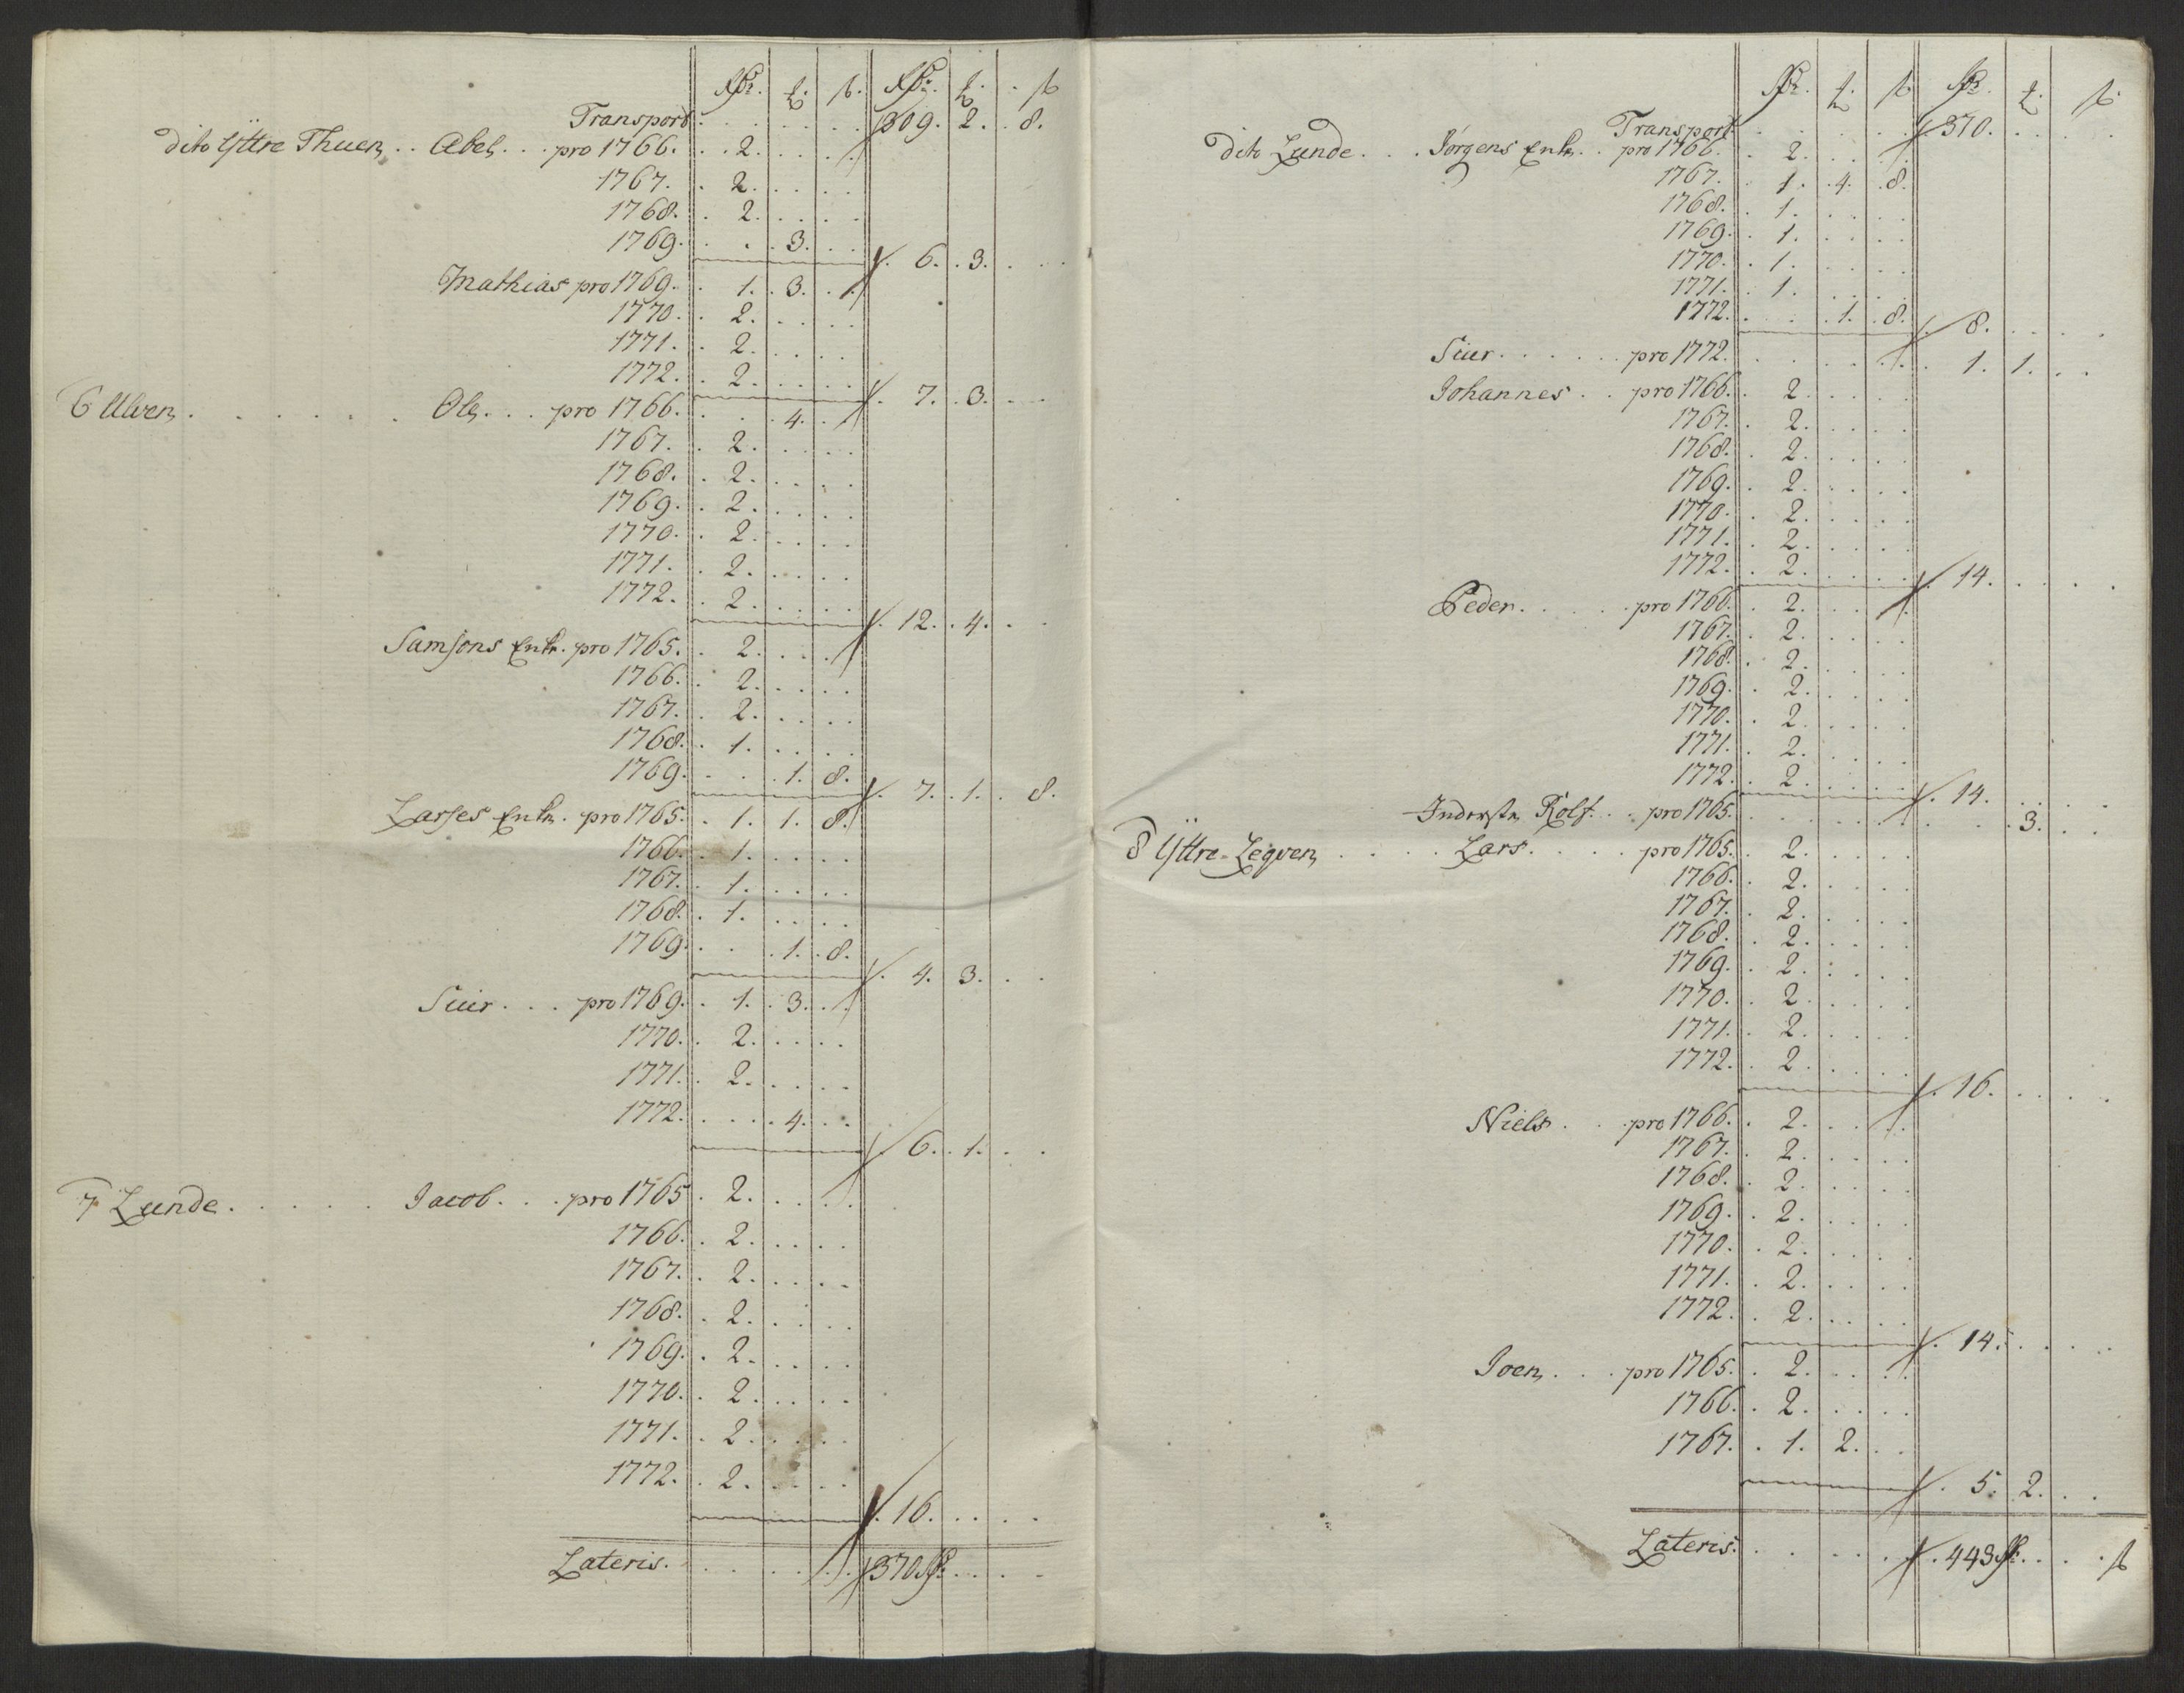 Rdr. ₶. ß. Rdr. ₶. ß
Transport . . . . . 309. 2. 8.
dito Yttre Thuen . . Abel . . . pro 1766. 2.
1767. 2.
1768. 2.
1769. . 3. . 6. 3.
Mathias pro 1769. 1. 3.
1770. 2.
1771. 2.
1772. 2. . . 7. 3.
6 Ulven . . . . . . Ole . . . pro 1766. . 4.
1767. 2.
1768. 2.
1769. 2.
1770. 2.
1771. 2.
1772. 2. . . 12. 4.
Samsons Enke. pro 1765. 2.
1766. 2.
1767. 2.
1768. 1.
1769. . 1. 8. 7. 1. 8.
Larses Enke. pro 1765. 1. 1. 8.
1766. 1.
1767. 1.
1768. 1.
1769. . 1. 8. 4. 3.
Siur . . . pro 1769. 1. 3.
1770. 2.
1771. 2.
1772. . 4. . 6. 1.
7 Lunde . . . . . Jacob . . . pro 1765 2.
1766. 2.
1767. 2.
1768. 2.
1769. 2.
1770. 2.
1771. 2.
1772. 2. . . 16.
Lateris. . . . . . 370 Rdr.
Rdr. ₶. ß Rdr. ₶. ß
Transport . . . . . 370.
dito Lunde . . . Jørgens Enke . . pro 1766. 2.
1767. 1. 4. 8.
1768. 1.
1769. 1.
1770. 1.
1771. 1.
1772. . 1. 8. 8.
Siur . . . . . . pro 1772. . . . 1. 1.
Johannes . . pro 1766. 2.
1767. 2.
1768. 2.
1769. 2.
1770. 2.
1771. 2.
1772. 2. . . 14.
Peder . . . . . pro 1766. 2.
1767. 2.
1768. 2.
1769. 2.
1770. 2.
1771. 2.
1772. 2. . . 14.
Inderste Rolf . . . pro 1765. . . . . 3.
8 Yttre-Legven . . . . Lars . . . . pro 1765. 2.
1766. 2.
1767. 2.
1768. 2.
1769. 2.
1770. 2.
1771. 2.
1772. 2. . . 16.
Niels . . pro 1766. 2.
1767. 2.
1768. 2.
1769. 2.
1770. 2.
1771. 2.
1772. 2. . . 14.
Joen . . . pro 1765. 2.
1766. 2.
1767. 1. 2. . 5. 2.
Lateris. . . . . . 443 Rdr. . . . ß